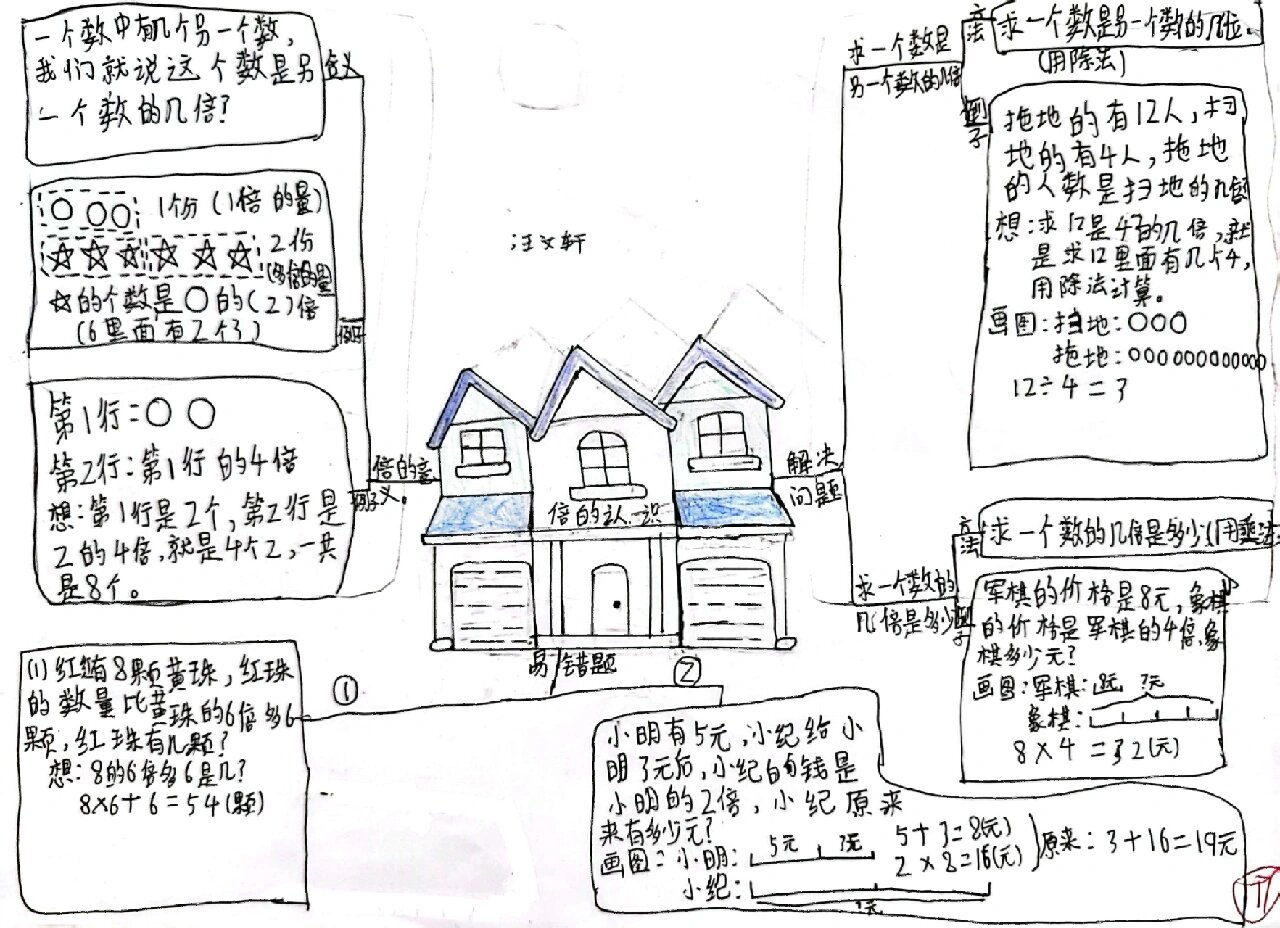 一个数中有几个另一个数,
我们就说这个数是另
一个数的几倍?
含义
1个份(1倍的量)
2份
(多倍的量
☆的个数是〇的(2)倍
(6里面有2个3)
例子
第1行=〇〇
第2行:第1行的4倍
想:第1行是2个,第2行是
2的4倍,就是4个2,一共
是8个。
倍的意
义。
汪文轩
倍的认识
解决
问题
求一个数是
另一个数的几倍
方法
求一个数是另一个数的几倍。
(用除法)
例子
拖地的有12人,扫
地的有4人,拖地
的人数是扫地的几倍
想:求12是4的几倍,就
是求12里面有几个4,
用除法计算。
画图:扫地:〇〇〇
拖地:〇〇〇〇〇〇〇〇〇〇〇〇
12÷4=3
求一个数的
几倍是多少
方法
求一个数的几倍是多少(用乘法
例子
军棋的价格是8元,象棋
的价格是军棋的4倍,象
棋多少元?
画图:军棋:8元 ?元
象棋:
8×4=32(元)
易错题
①
②
(1)红超有8颗黄珠,红珠
的数量比黄珠的6倍多6
颗,红珠有几颗?
想:8的6倍多6是几?
8×6+6=54(颗)
小明有5元,小纪给小
明3元后,小纪的钱是
小明的2倍,小纪原来
来有多少元?
画图:小明: 5元 3元
小纪:
?元
5+3=8(元)
2×8=16(元)
原来:3+16=19元